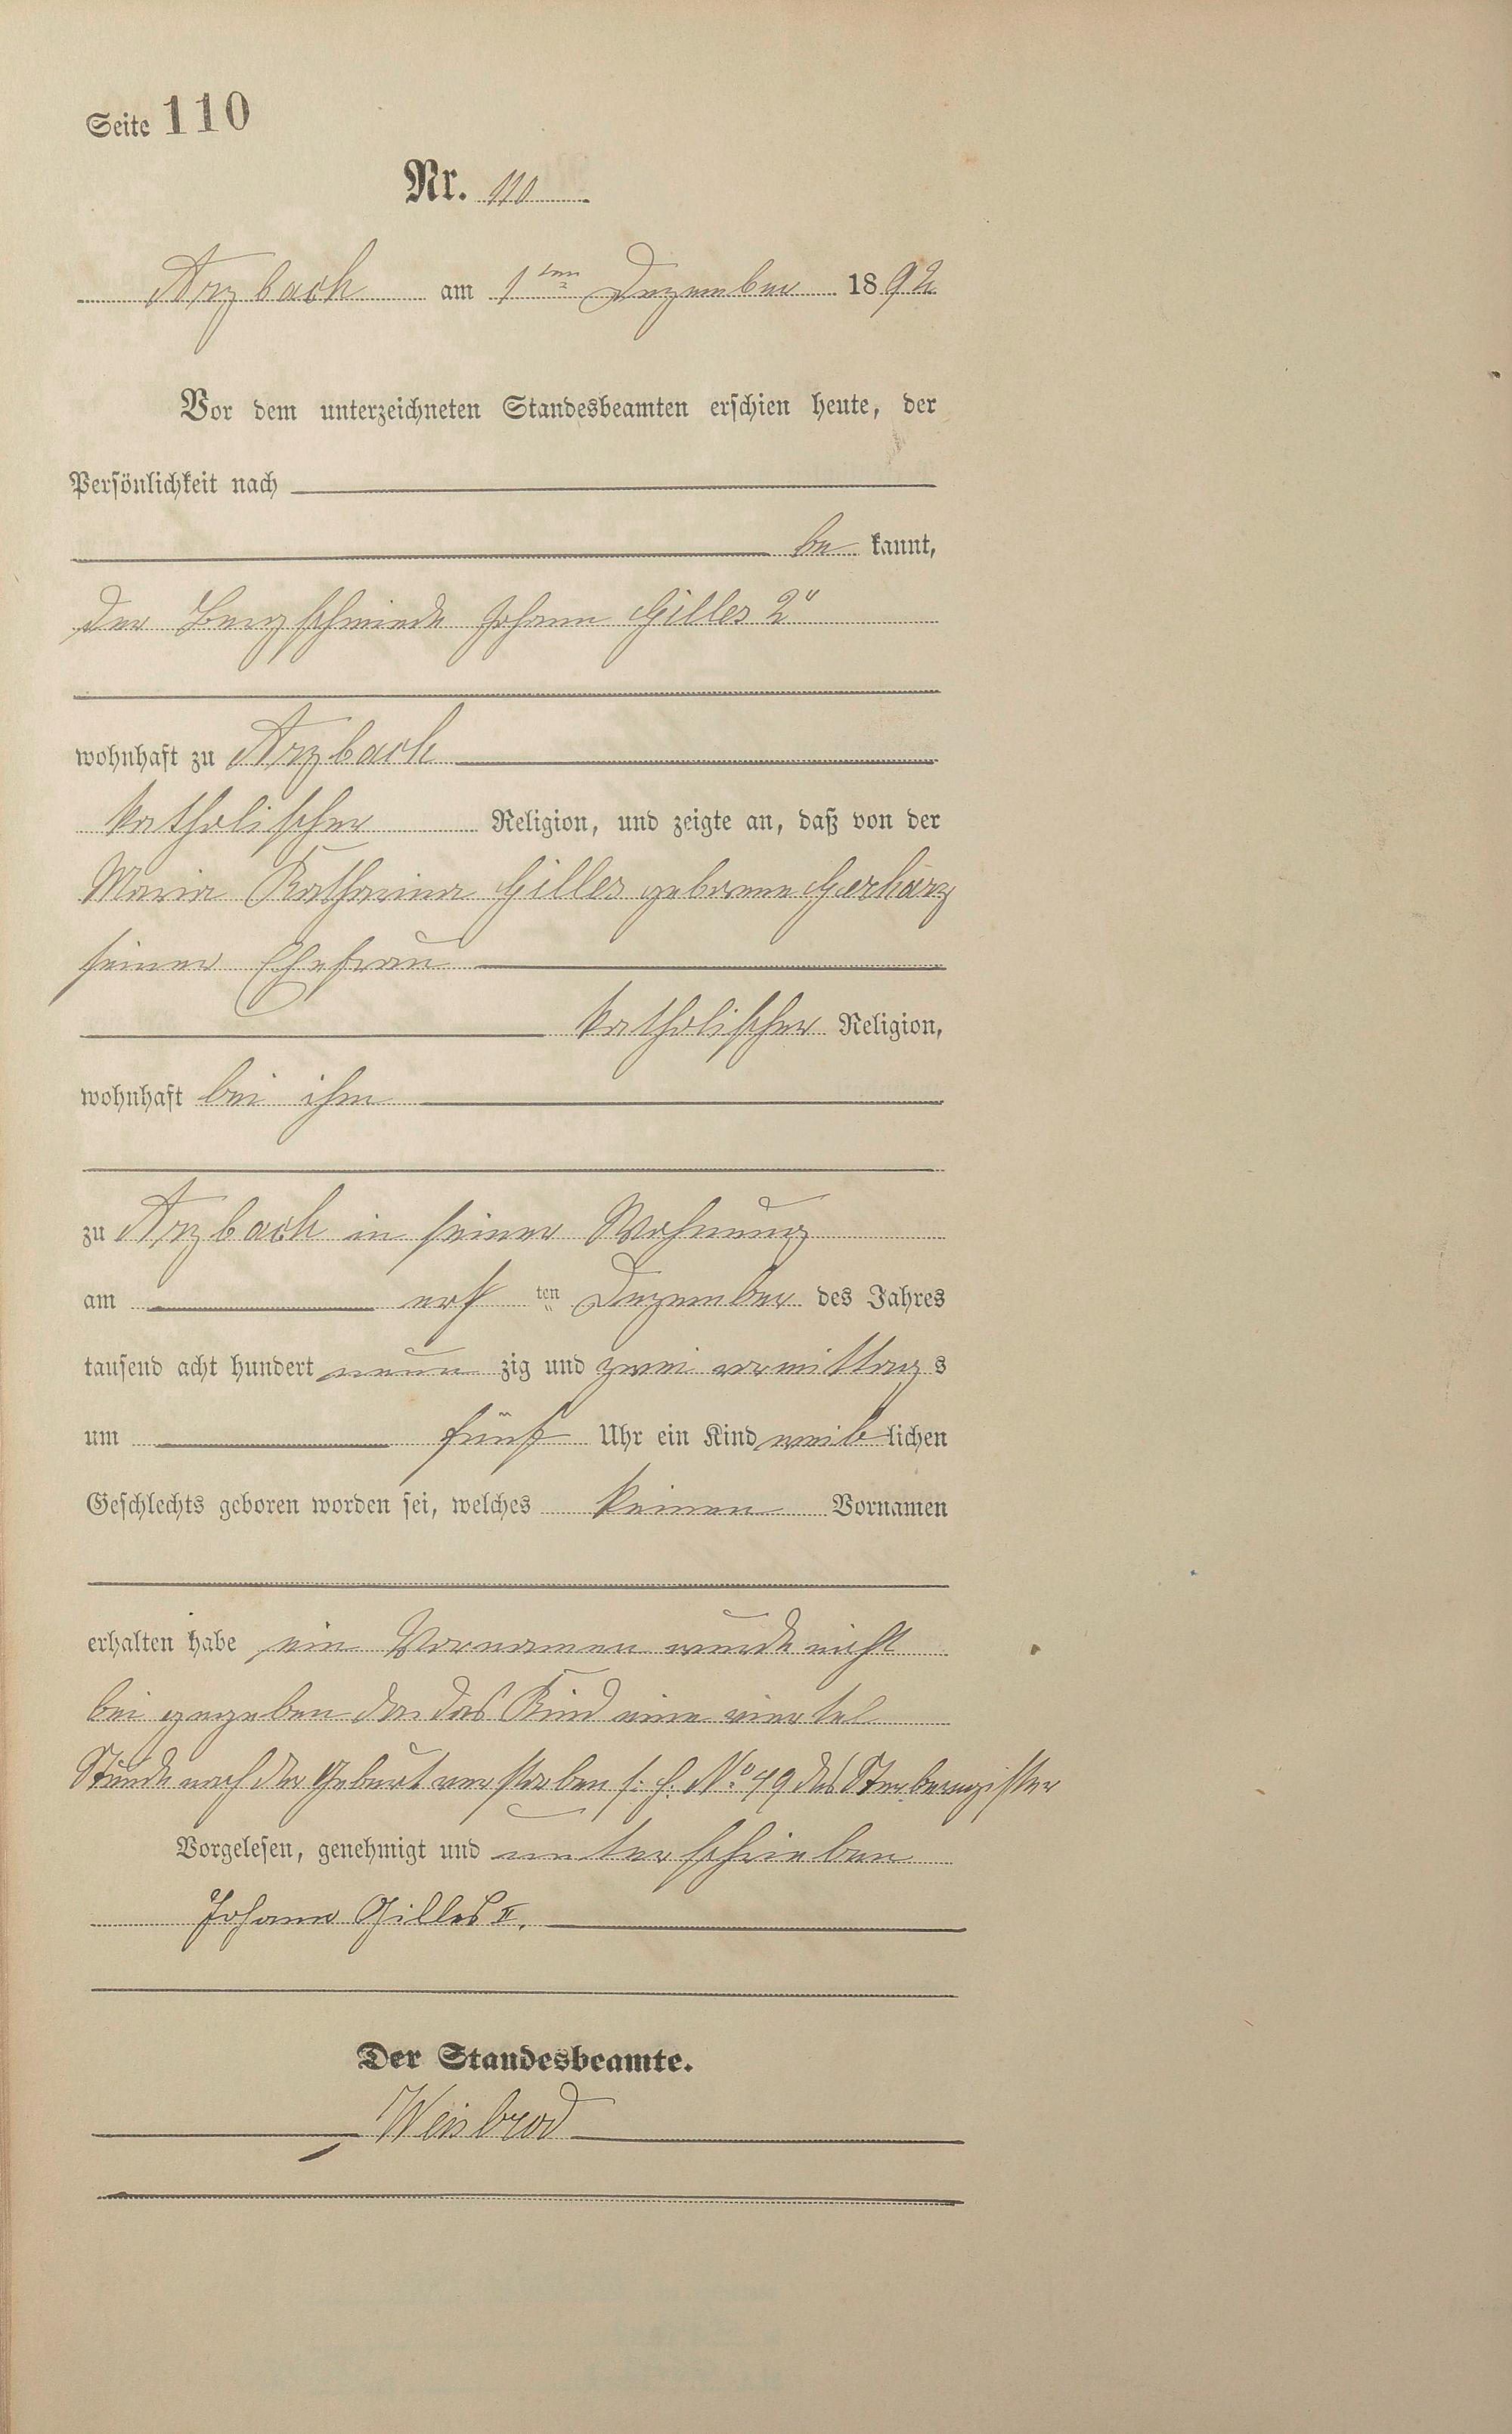 Seite 110
Nr. 110
Arzbach am 1ten Dezember 1892
Vor dem unterzeichneten Standesbeamten erschien heute, der
Persönlichkeit nach
be kannt,
der Bergschmiede Johann Gilles 2''
wohnhaft zu Arzbach
katholischer Religion, und zeigte an, daß von der
Maria Katharina Gilles geborene Gerharz
seiner Ehefrau
katholischer Religion,
wohnhaft bei ihm
zu Arzbach in seiner Wohnung
am erst ten Dezember des Jahres
tausend acht hundert neun zig und zwei vormittags
um fünf Uhr ein Kind weiblichen
Geschlechts geboren worden sei, welches keinen Vornamen
erhalten habe ein Vornamen wurde nicht
bei gegeben da das Kind eine viertel
Stunde nach der Geburt verstorben s. h. No. 49 des Sterberegister
Vorgelesen, genehmigt und unterschrieben
Johann Gilles II.
Der Standesbeamte.
Weisbrod